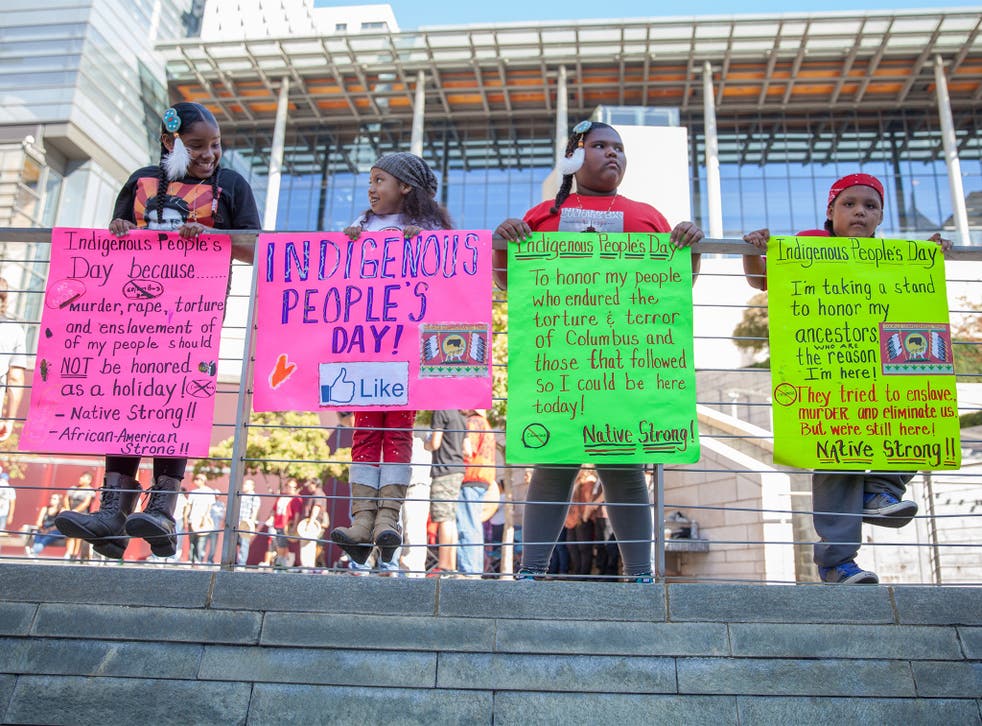 Indigenous People's
Day because.......
Murder, rape, torture
and enslavement of
of my people should
NOT be honored
as a holiday!
- Native Strong!!
- African-American
Strong!!
INDIGENOUS
PEOPLE'S
DAY!
Like
Indigenous People's Day
To honor my people
who endured the
torture & terror
of Columbus and
those that followed
so I could be here
today!
Native Strong!
Indigenous People's Day
I'm taking a stand
to honor my
ancestors,
WHO ARE
the reason
I'm here!
They tried to enslave,
MURDER and eliminate us.
But we're still here!
Native Strong!!